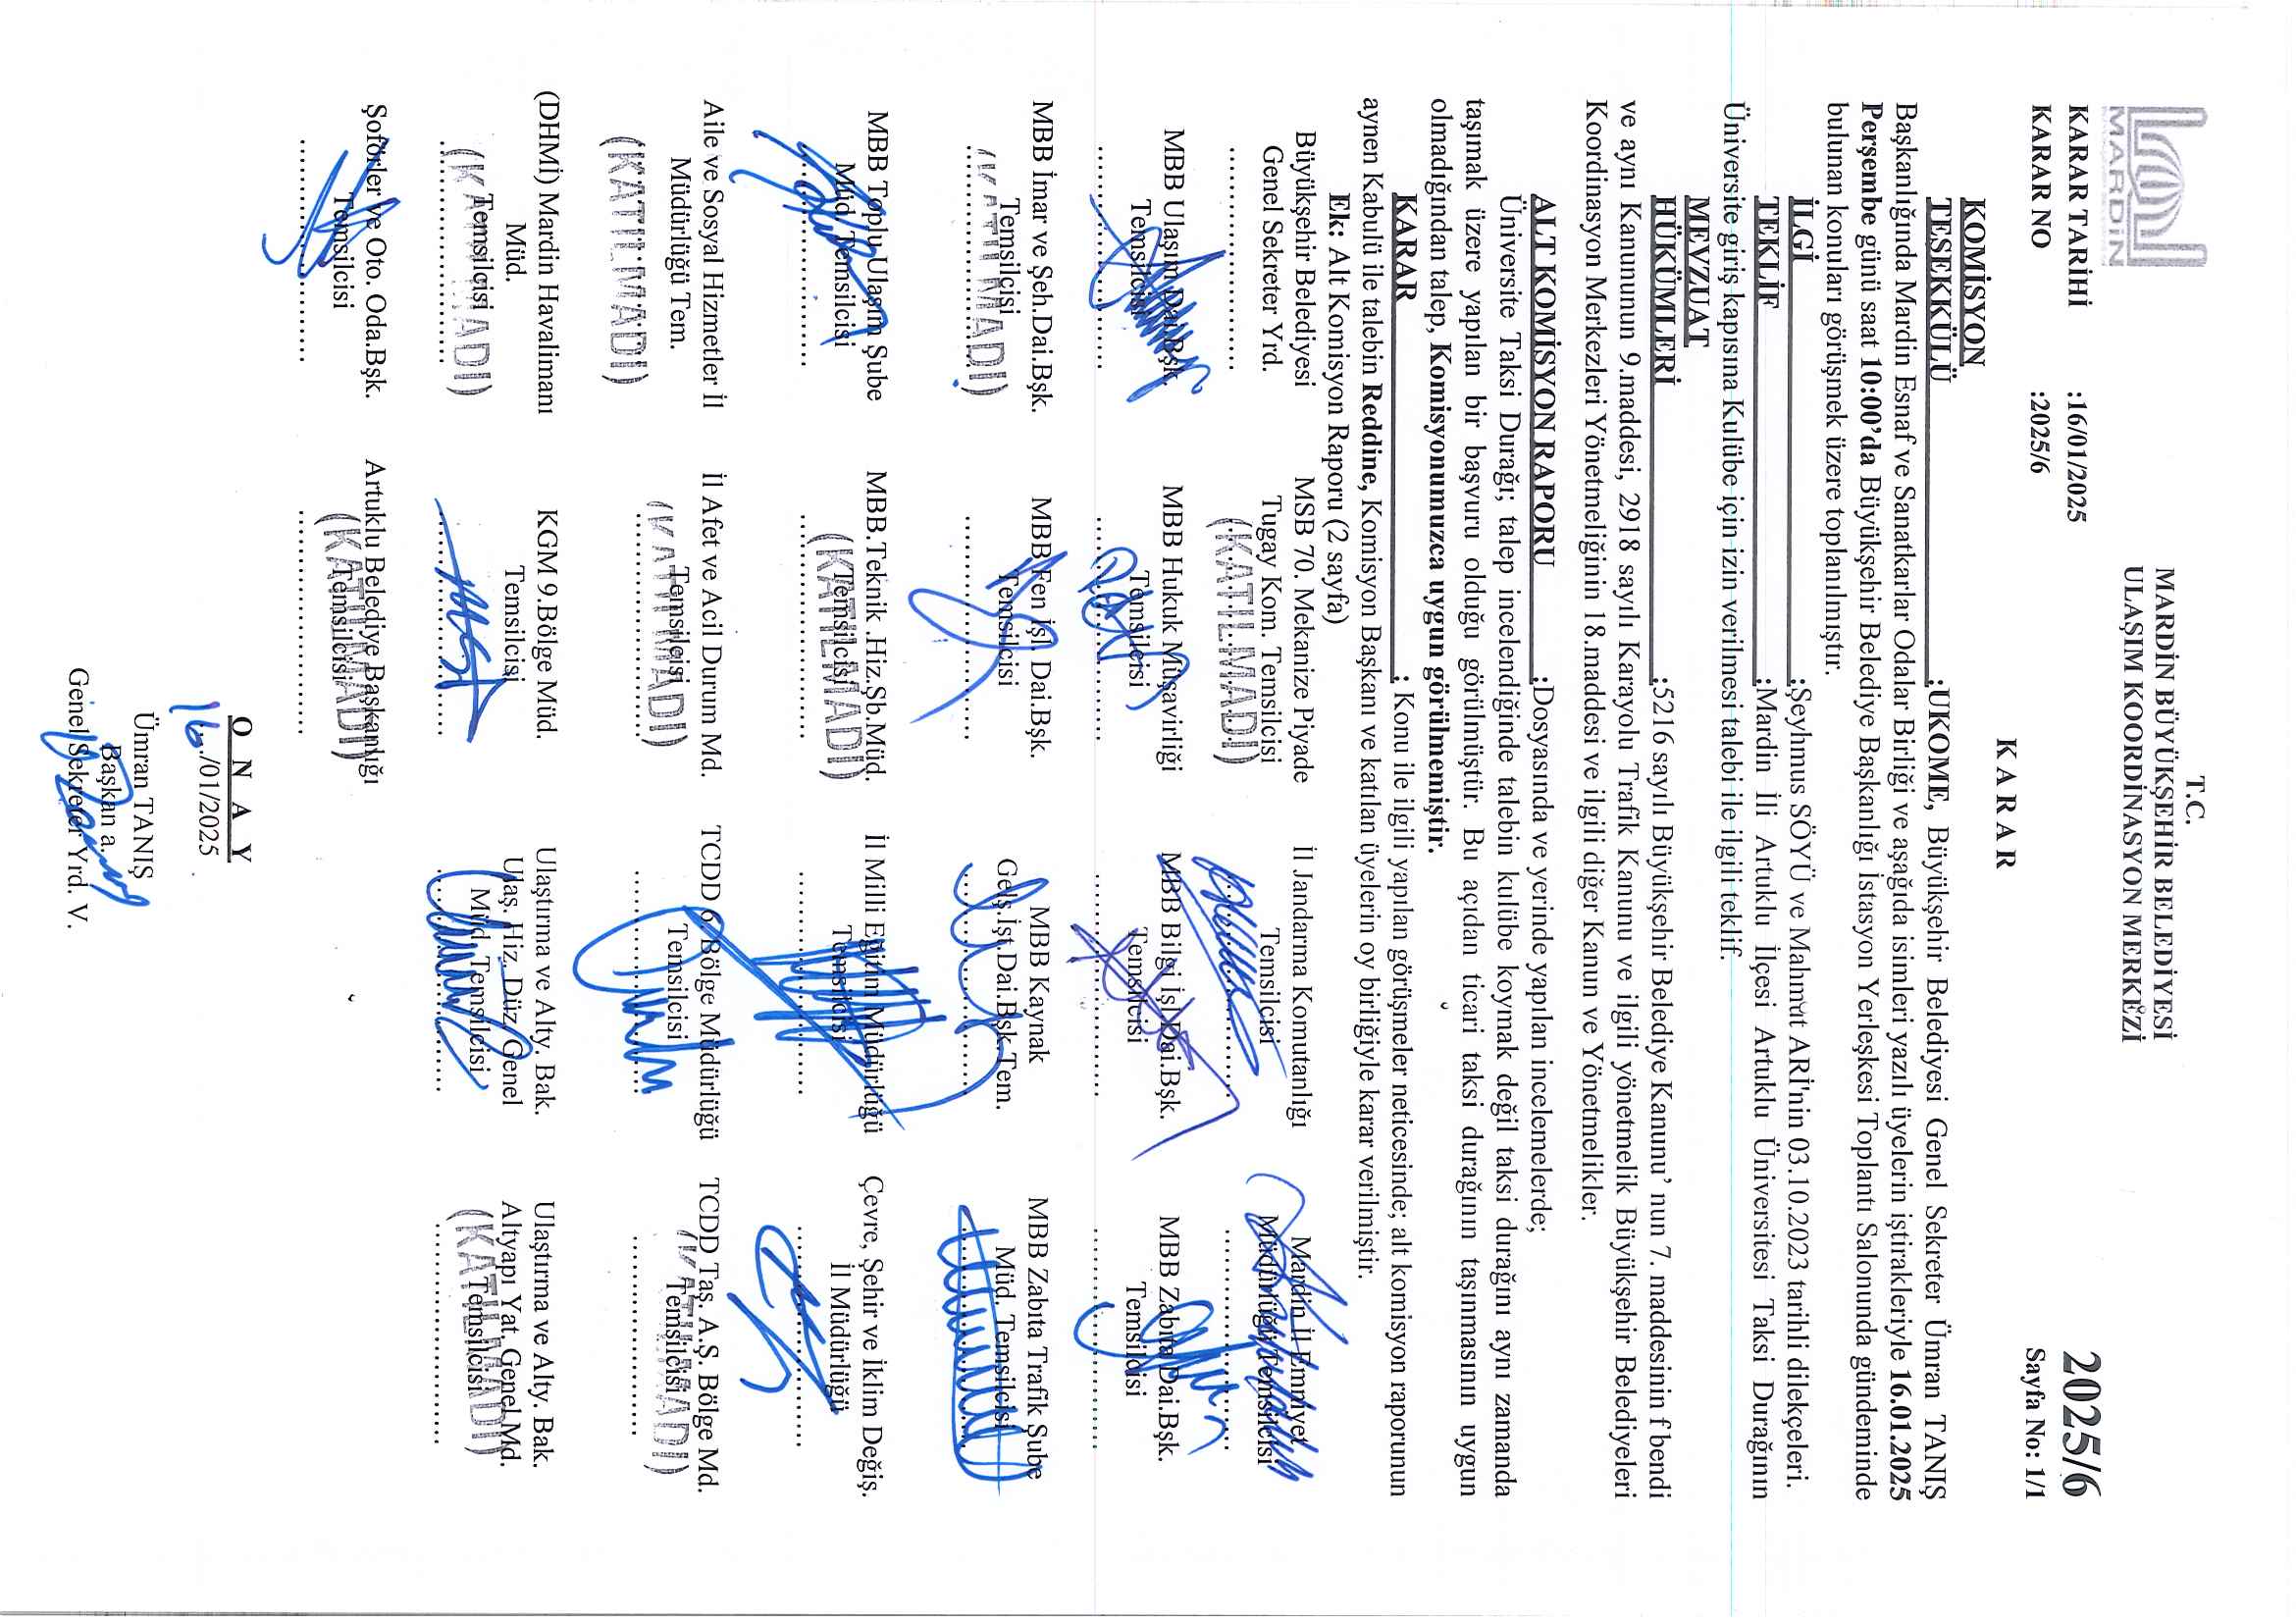 T.C.
MARDİN BÜYÜKŞEHİR BELEDİYESİ
ULAŞIM KOORDİNASYON MERKEZİ
MARDİN
2025/6
KARAR TARİHİ :16/01/2025
KARAR NO :2025/6
Sayfa No: 1/1
K A R A R
KOMİSYON
TEŞEKKÜLÜ :UKOME, Büyükşehir Belediyesi Genel Sekreter Ümran TANIŞ
Başkanlığında Mardin Esnaf ve Sanatkarlar Odalar Birliği ve aşağıda isimleri yazılı üyelerin iştirakleriyle 16.01.2025
Perşembe günü saat 10:00'da Büyükşehir Belediye Başkanlığı İstasyon Yerleşkesi Toplantı Salonunda gündeminde
bulunan konuları görüşmek üzere toplanılmıştır.
İLGİ :Şeyhmus SÖYÜ ve Mahmut ARİ'nin 03.10.2023 tarihli dilekçeleri.
TEKLİF :Mardin İli Artuklu İlçesi Artuklu Üniversitesi Taksi Durağının
Üniversite giriş kapısına Kulübe için izin verilmesi talebi ile ilgili teklif.
MEVZUAT
HÜKÜMLERİ :5216 sayılı Büyükşehir Belediye Kanunu' nun 7. maddesinin f bendi
ve aynı Kanununun 9.maddesi, 2918 sayılı Karayolu Trafik Kanunu ve ilgili yönetmelik Büyükşehir Belediyeleri
Koordinasyon Merkezleri Yönetmeliğinin 18.maddesi ve ilgili diğer Kanun ve Yönetmelikler.
ALT KOMİSYON RAPORU :Dosyasında ve yerinde yapılan incelemelerde;
Üniversite Taksi Durağı; talep incelendiğinde talebin kulübe koymak değil taksi durağını aynı zamanda
taşımak üzere yapılan bir başvuru olduğu görülmüştür. Bu açıdan ticari taksi durağının taşınmasının uygun
olmadığından talep, Komisyonumuzca uygun görülmemiştir.
KARAR : Konu ile ilgili yapılan görüşmeler neticesinde; alt komisyon raporunun
aynen Kabulü ile talebin Reddine, Komisyon Başkanı ve katılan üyelerin oy birliğiyle karar verilmiştir.
Ek: Alt Komisyon Raporu (2 sayfa)
Büyükşehir Belediyesi
Genel Sekreter Yrd.
MSB 70. Mekanize Piyade
Tugay Kom. Temsilcisi
(KATILMADI)
İl Jandarma Komutanlığı
Temsilcisi
Mardin İl Emniyet
Müdürlüğü Temsilcisi
MBB Ulaşım Dai.Bşk.
Temsilcisi
MBB Hukuk Müşavirliği
Temsilcisi
MBB Bilgi İşl.Dai.Bşk.
Temsilcisi
MBB Zabıta Dai.Bşk.
Temsilcisi
MBB İmar ve Şeh.Dai.Bşk.
Temsilcisi
(KATILMADI)
MBB Fen İşl. Dai.Bşk.
Temsilcisi
MBB Kaynak
Gelş.İşt.Dai.Bşk.Tem.
MBB Zabıta Trafik Şube
Müd. Temsilcisi
MBB Toplu Ulaşım Şube
Müd Temsilcisi
MBB.Teknik .Hiz.Şb.Müd.
Temsilcisi
(KATILMADI)
İl Milli Eğitim Müdürlüğü
Temsilcisi
Çevre, Şehir ve İklim Değiş.
İl Müdürlüğü
Aile ve Sosyal Hizmetler İl
Müdürlüğü Tem.
(KATILMADI)
İl Afet ve Acil Durum Md.
Temsilcisi
(KATILMADI)
TCDD 6. Bölge Müdürlüğü
Temsilcisi
TCDD Taş. A.Ş. Bölge Md.
Temsilcisi
(KATILMADI)
(DHMİ) Mardin Havalimanı
Müd.
Temsilcisi
(KATILMADI)
KGM 9.Bölge Müd.
Temsilcisi
Ulaştırma ve Alty. Bak.
Ulaş. Hiz. Düz. Genel
Müd. Temsilcisi
Ulaştırma ve Alty. Bak.
Altyapı Yat. Genel Md.
Temsilcisi
(KATILMADI)
Şoförler ve Oto. Oda.Bşk.
Temsilcisi
Artuklu Belediye Başkanlığı
Temsilcisi
(KATILMADI)
O N A Y
16/01/2025
Ümran TANIŞ
Başkan a.
Genel Sekreter Yrd. V.